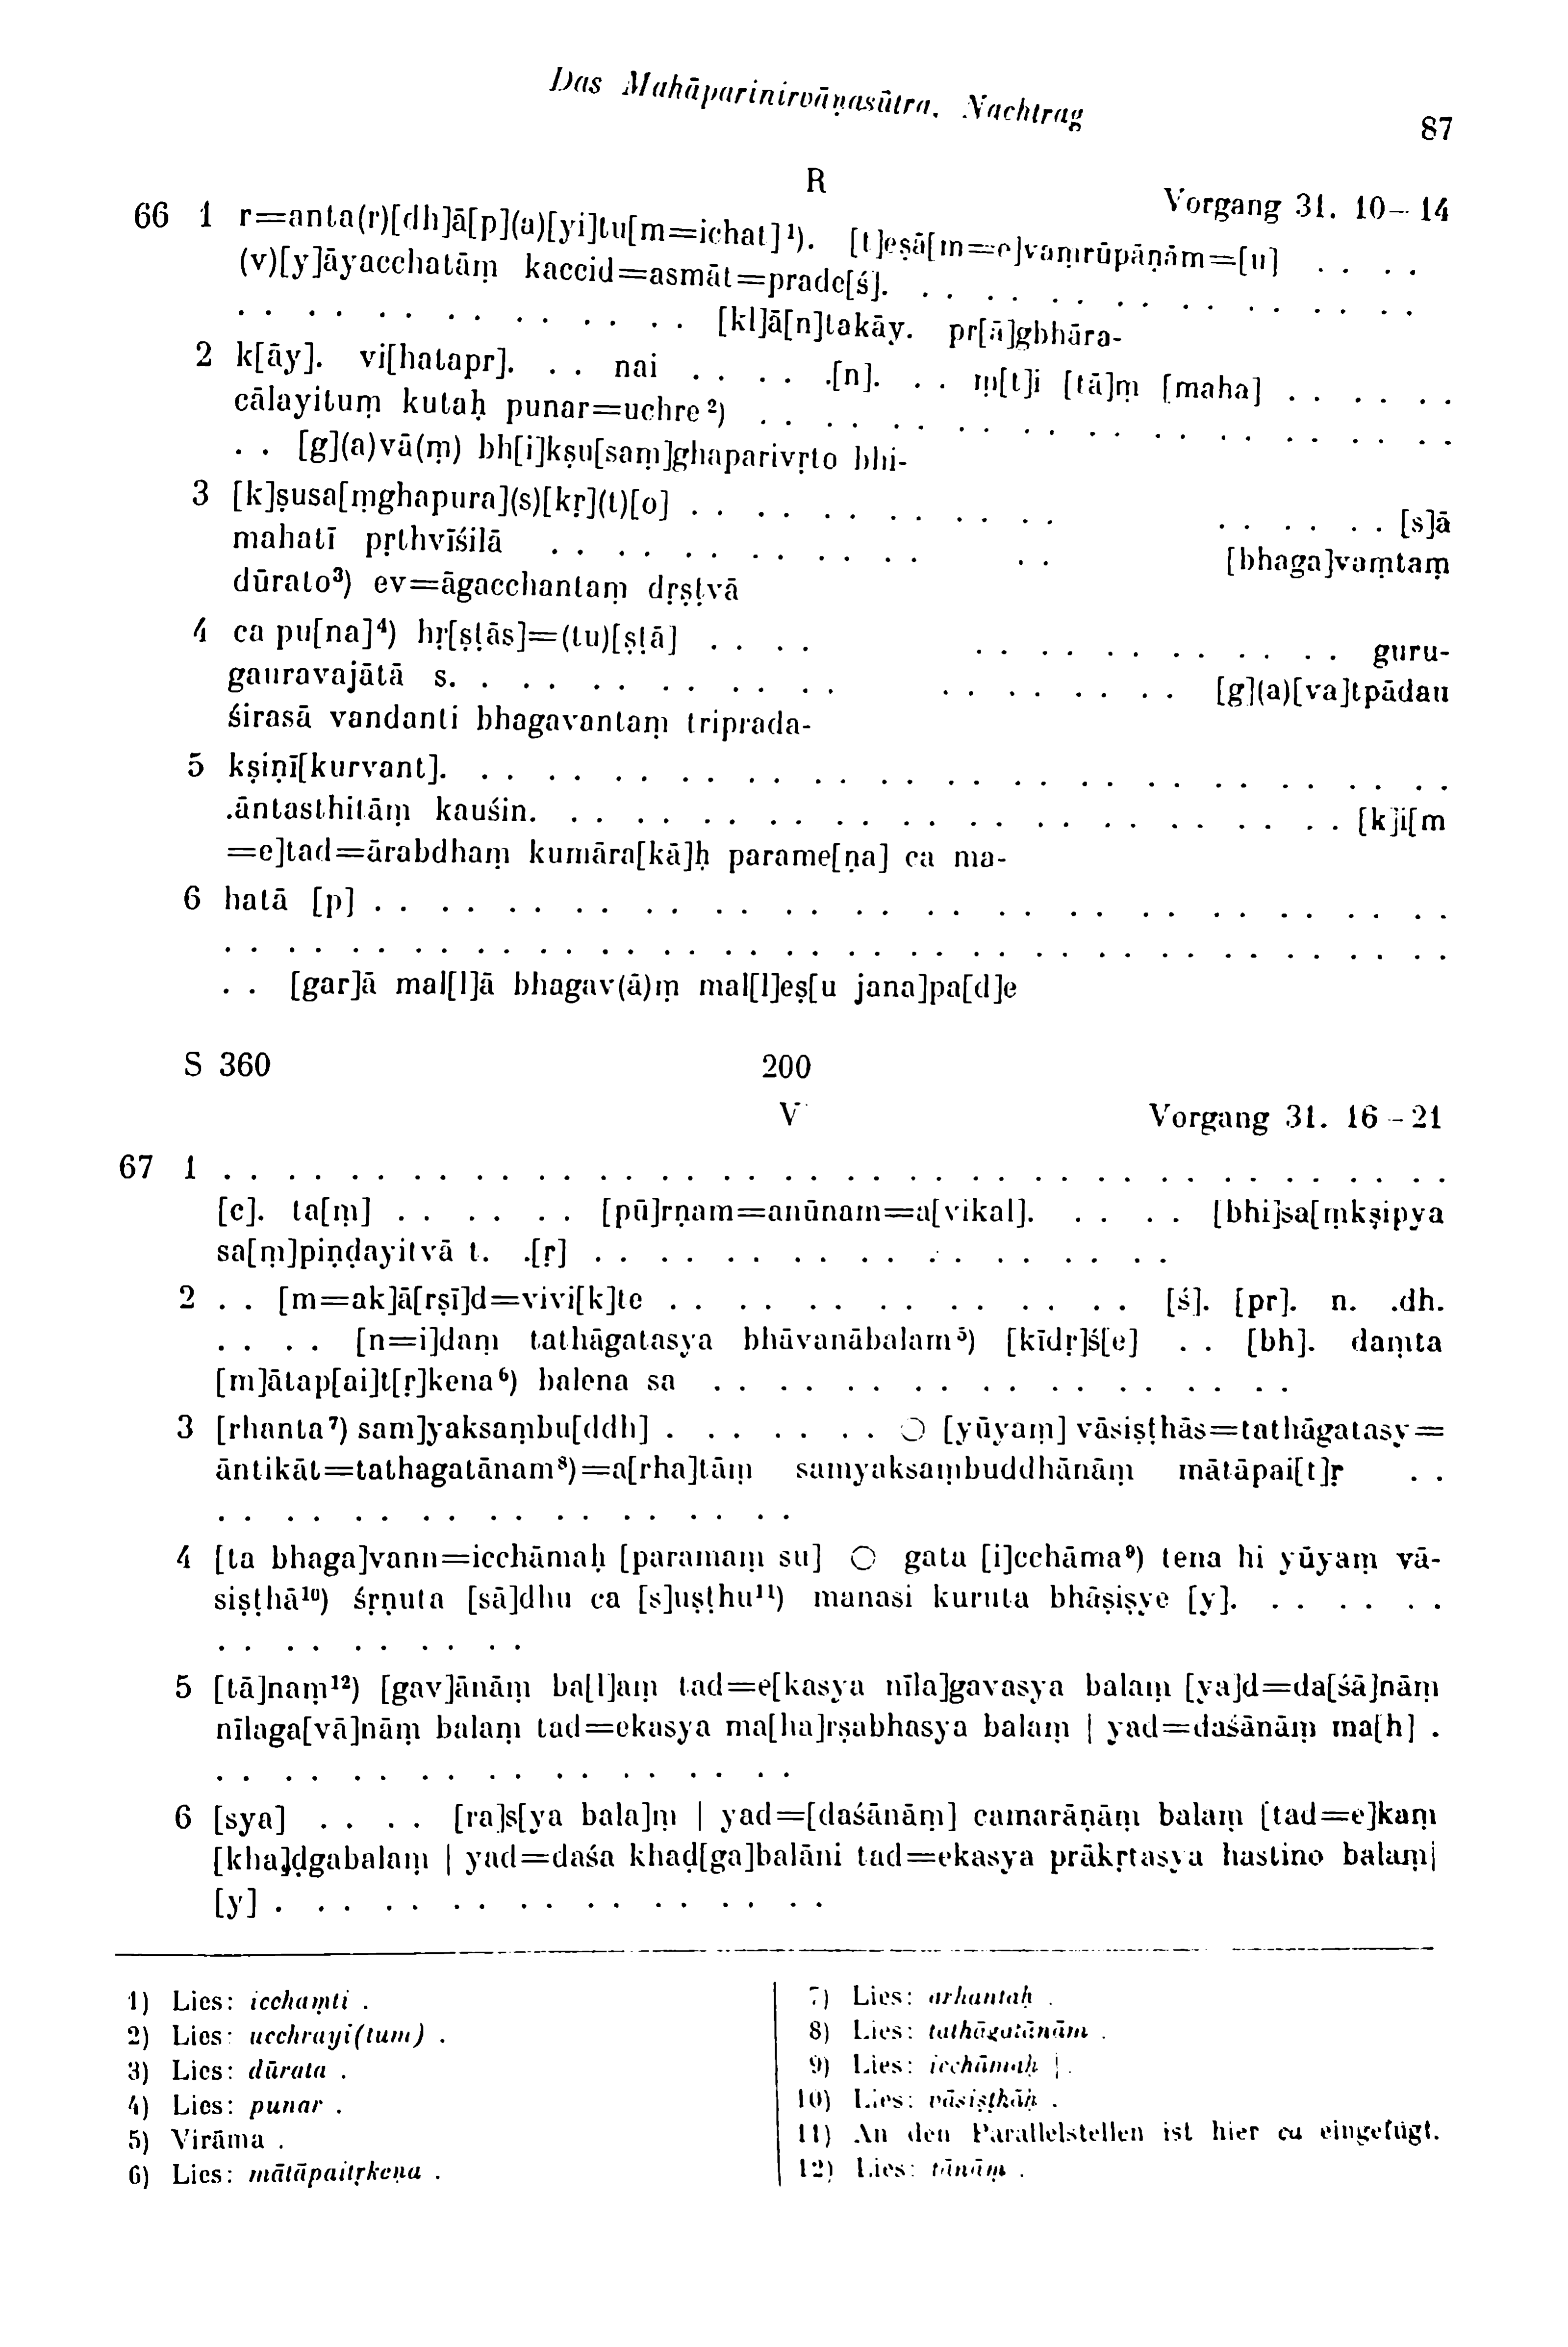 Das Mahāparinirvāṇasūtra. Nachtrag 87
R
Vorgang 31. 10–14
66 1 r=anta(r)[dh]ā[p](a)[yi]tu[m=ichat]¹). [t]eṣā[m=e]vaṃrūpāṇām=[u] . . . .
(v)[y]āyacchatāṃ kaccid=asmāt=prade[ś]. . . . . . . . . . . . . . . . .
. . . . . . . . . . . . . . [kl]ā[n]takāy. pr[ā]gbhāra-
2 k[āy]. vi[hatapr]. . . nai . . . . .[n]. . . ṃ[t]i [tā]ṃ [maha] . . . . . .
cālayituṃ kutaḥ punar=uchre²) . . . . . . . . . . . . . . . . . . . . .
. . [g](a)vā(ṃ) bh[i]kṣu[saṃ]ghaparivṛto bhi-
3 [k]ṣusa[ṃghapura](s)[kṛ](t)[o] . . . . . . . . . . . . . . . . . [s]ā
mahatī pṛthvīśilā . . . . . . . . . . . . . [bhaga]vaṃtaṃ
dūrato³) ev=āgacchantaṃ dṛṣṭvā
4 ca pu[na]⁴) hṛ[ṣṭās]=(tu)[ṣṭā] . . . . . . . . . . . . . . . . guru-
gauravajātā s. . . . . . . . . . . . . . . . . . . . . [g](a)[va]tpādau
śirasā vandanti bhagavantaṃ triprada-
5 kṣiṇī[kurvant]. . . . . . . . . . . . . . . . . . . . . . . . . . . . . . .
.āntasthitāṃ kauśin. . . . . . . . . . . . . . . . . . . . . . . . . [k]i[m
=e]tad=ārabdhaṃ kumāra[kā]ḥ parame[ṇa] ca ma-
6 hatā [p] . . . . . . . . . . . . . . . . . . . . . . . . . . . . . . . .
. . . . . . . . . . . . . . . . . . . . . . . . . . . . . . . . . . . . . .
. . [gar]ā mal[l]ā bhagav(ā)ṃ mal[l]eṣ[u jana]pa[d]e
S 360 200
V
Vorgang 31. 16–21
67 1 . . . . . . . . . . . . . . . . . . . . . . . . . . . . . . . . . . . . . .
[c]. ta[ṃ] . . . . . . [pū]rṇam=anūnam=a[vikal]. . . . . [bhi]sa[ṃkṣipya
sa[ṃ]piṇḍayitvā t. .[ṛ] . . . . . . . . . . . . . . . . . .
2 . . [m=ak]ā[rṣī]d=vivi[k]te . . . . . . . . . . . . . . [ś]. [pr]. n. .dh.
. . . . [n=i]daṃ tathāgatasya bhāvanābalam⁵) [kīdṛ]ś[e] . . [bh]. daṃta
[m]ātap[ai]t[ṛ]kena⁶) balena sa . . . . . . . . . . . . . . . . . .
3 [rhanta⁷) sam]yaksaṃbu[ddh] . . . . . . . ○ [yūyaṃ] vāsiṣṭhās=tathāgatasy=
āntikāt=tathagatānam⁸)=a[rha]tāṃ samyaksaṃbuddhānāṃ mātāpai[t]ṛ . .
. . . . . . . . . . . . . . . . . .
4 [ta bhaga]vann=icchāmaḥ [paramaṃ su] ○ gata [i]cchāma⁹) tena hi yūyaṃ vā-
siṣṭhā¹⁰) śṛṇuta [sā]dhu ca [s]uṣṭhu¹¹) manasi kuruta bhāṣiṣye [y]. . . . . . .
. . . . . . . . . .
5 [tā]naṃ¹²) [gav]ānāṃ ba[l]aṃ tad=e[kasya nīla]gavasya balaṃ [ya]d=da[śā]nāṃ
nīlaga[vā]nāṃ balaṃ tad=ekasya ma[ha]rṣabhasya balaṃ | yad=daśānāṃ ma[h] .
. . . . . . . . . . . . . . . . . .
6 [sya] . . . . [ra]s[ya bala]ṃ | yad=[daśānāṃ] camarāṇāṃ balaṃ [tad=e]kaṃ
[kha]ḍgabalaṃ | yad=daśa khaḍ[ga]balāni tad=ekasya prākṛtasya hastino balaṃ|
[y] . . . . . . . . . . . . . . . . .
1) Lies: icchaṃti .
2) Lies: ucchrayi(tum) .
3) Lies: dūrata .
4) Lies: punar .
5) Virāma .
6) Lies: mātāpaitṛkeṇa .
7) Lies: arhantaḥ .
8) Lies: tathāgatānām .
9) Lies: icchāmaḥ | .
10) Lies: vāsiṣṭhāḥ .
11) An den Parallelstellen ist hier ca eingefügt.
12) Lies: tānāṃ .